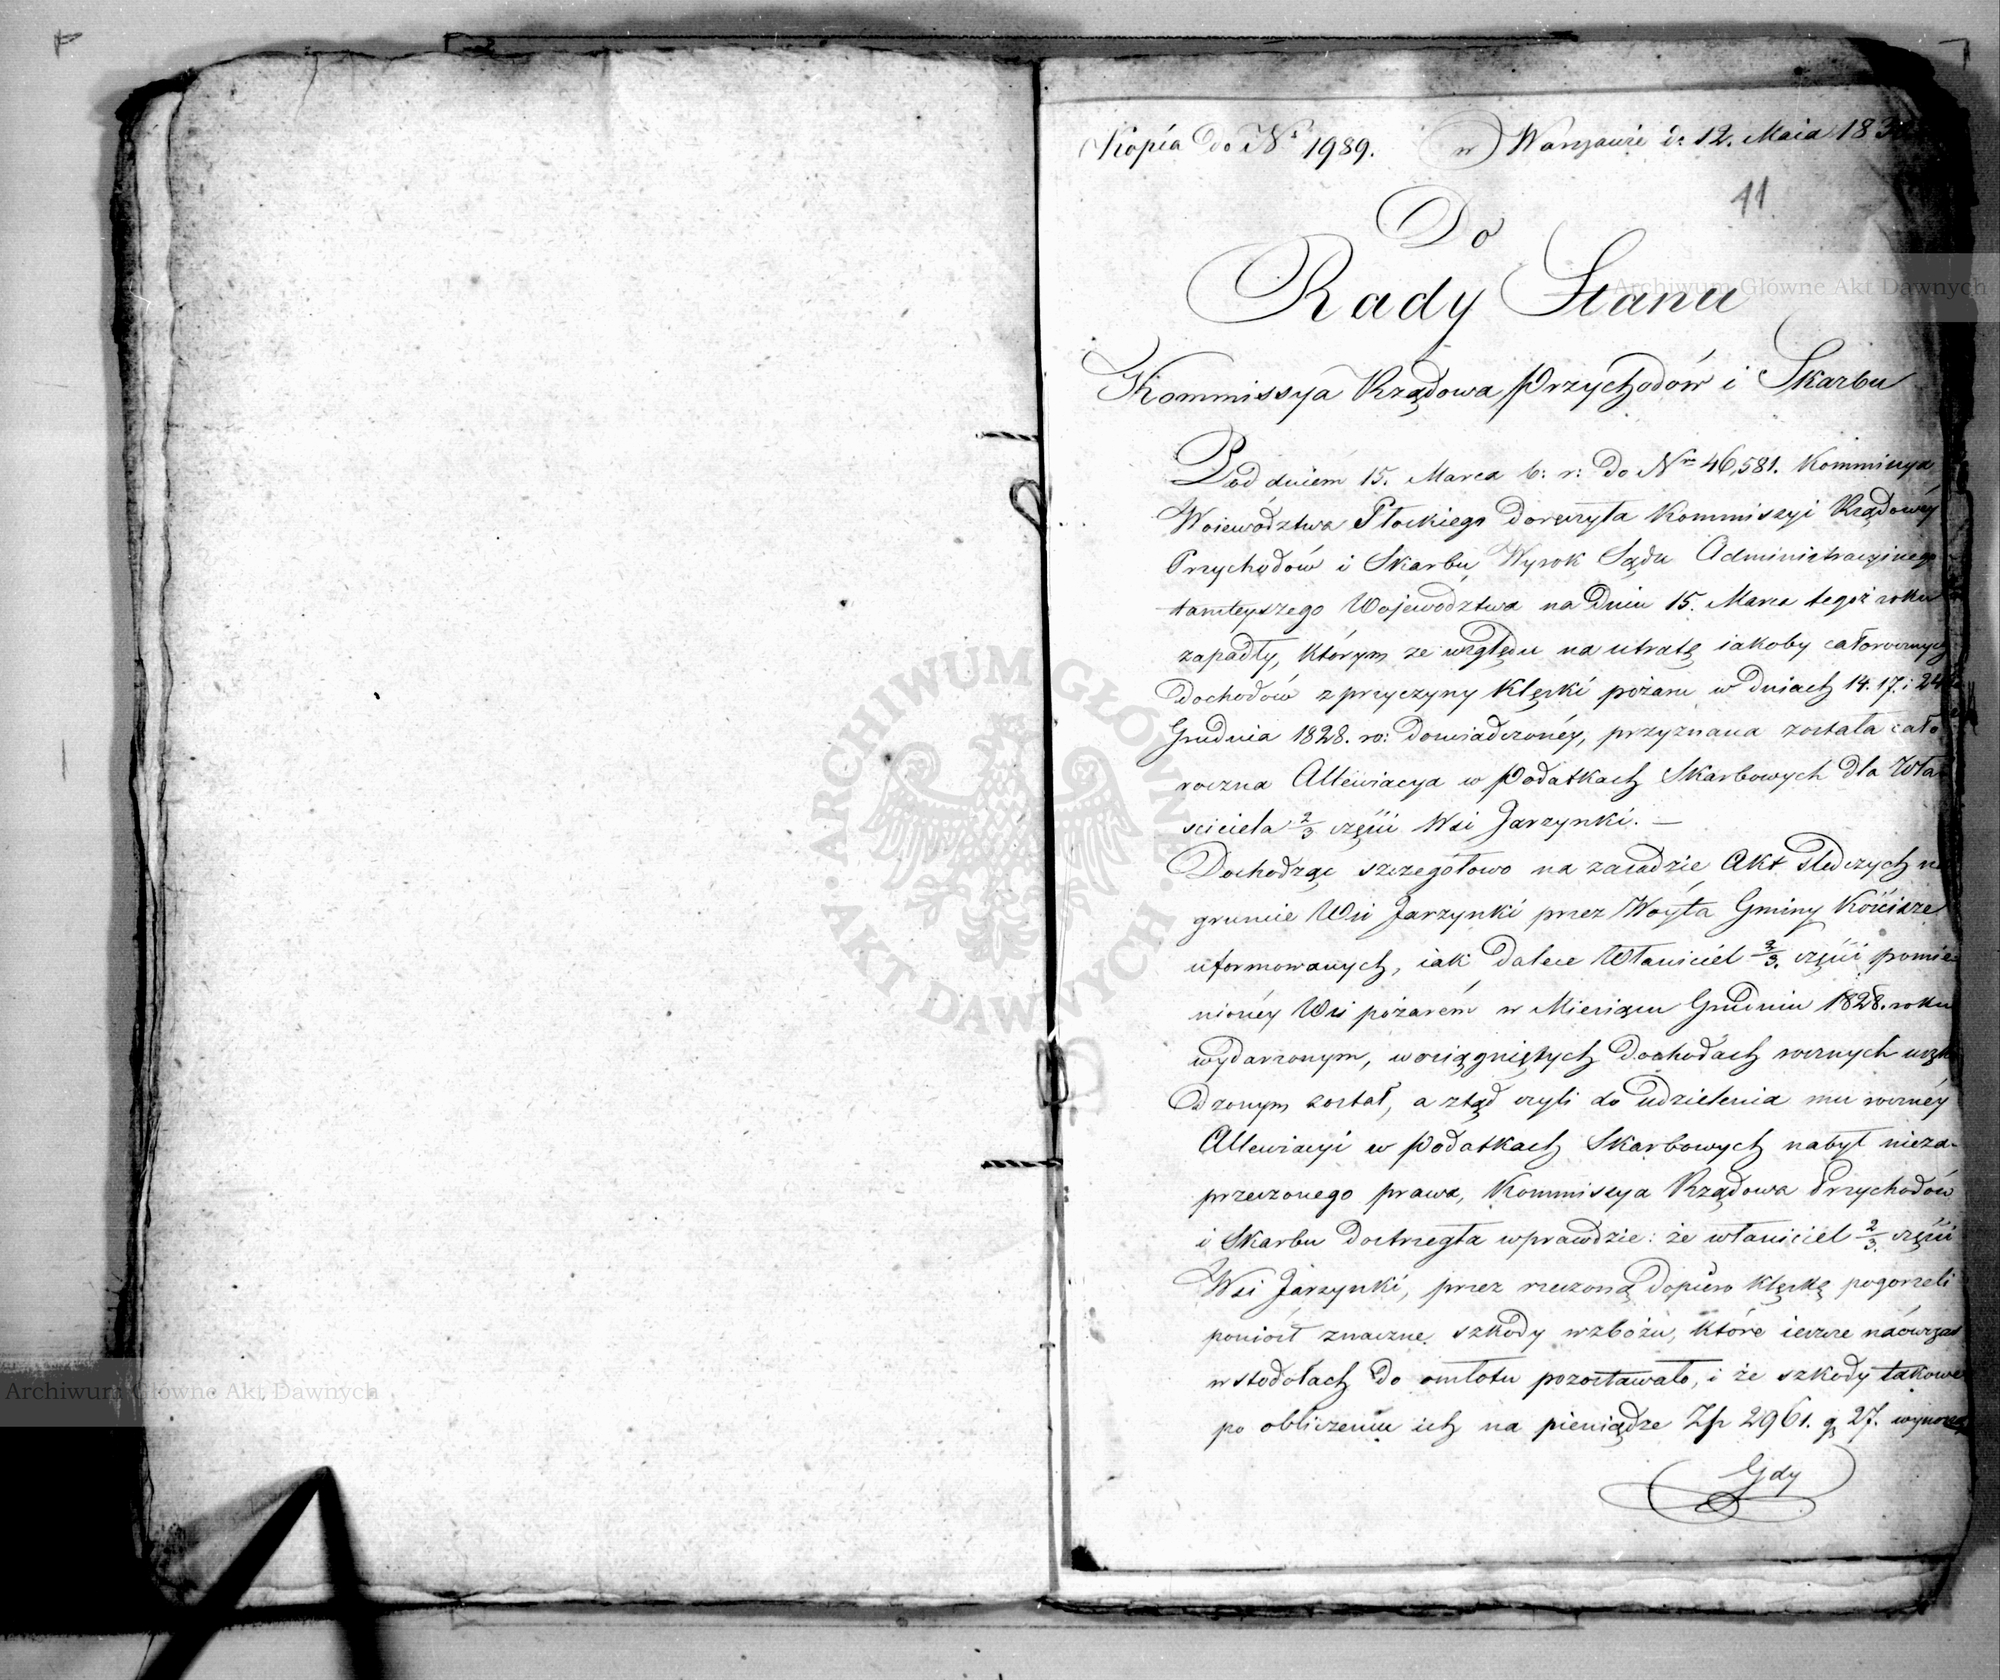 Kopia do Nr 1989.
w Warszawie d: 12. Maia 183
11
Do
Rady Stanu
Kommissya Rządowa Przychodów i Skarbu
Pod dniem 15. Marca b: r: do Nro 46,581. Kommissya
Woiewództwa Płockiego doręczyła Kommissyi Rządowéy
Przychodów i Skarbu Wyrok Sądu Administracyinego
tamteyszego Województwa na dniu 15. Marca tegoż roku
zapadły, którym ze względu na utratę iakoby całorocznych
dochodów z przyczyny klęski pożaru w dniach 14. 17. i 24
Grudnia 1828. ro: doświadczonéy, przyznana została cało
roczna Allewiacya w Podatkach Skarbowych dla Wła
sciciela 2/3 części Wsi Jarzynki. —
Dochodząc szczegółowo na zasadzie Akt Sledczych na
gruncie Wsi Jarzynki przez Woyta Gminy
uformowanych, iak dalece Właściciel 2/3. części pomie
nionéy Wsi pożarem w Miesiącu Grudniu 1828. roku
wydarzonym, w osiągniętych dochodach rocznych uszko
dzonym został, a ztąd czyli do udzielenia mu rocznéy
Allewiacyi w Podatkach Skarbowych nabył nieza-
przeczonego prawa, Kommissya Rządowa Przychodów
i Skarbu dostrzegła wprawdzie: że właściciel 2/3. części
Wsi Jarzynki, przez rzeczoną dopiero klęskę pogorzeli
poniósł znaczne szkody w zbożu, które ieszcze naówczas
w stodołach do omłotu pozostawało, i że szkody takowe
po obliczeniu ich na pieniądze Zł 2961. g 27. wynoszą
Gdy
Archiwum Główne Akt Dawnych
Archiwum Główne Akt Dawnych
ARCHIWUM GŁÓWNE · AKT DAWNYCH ·